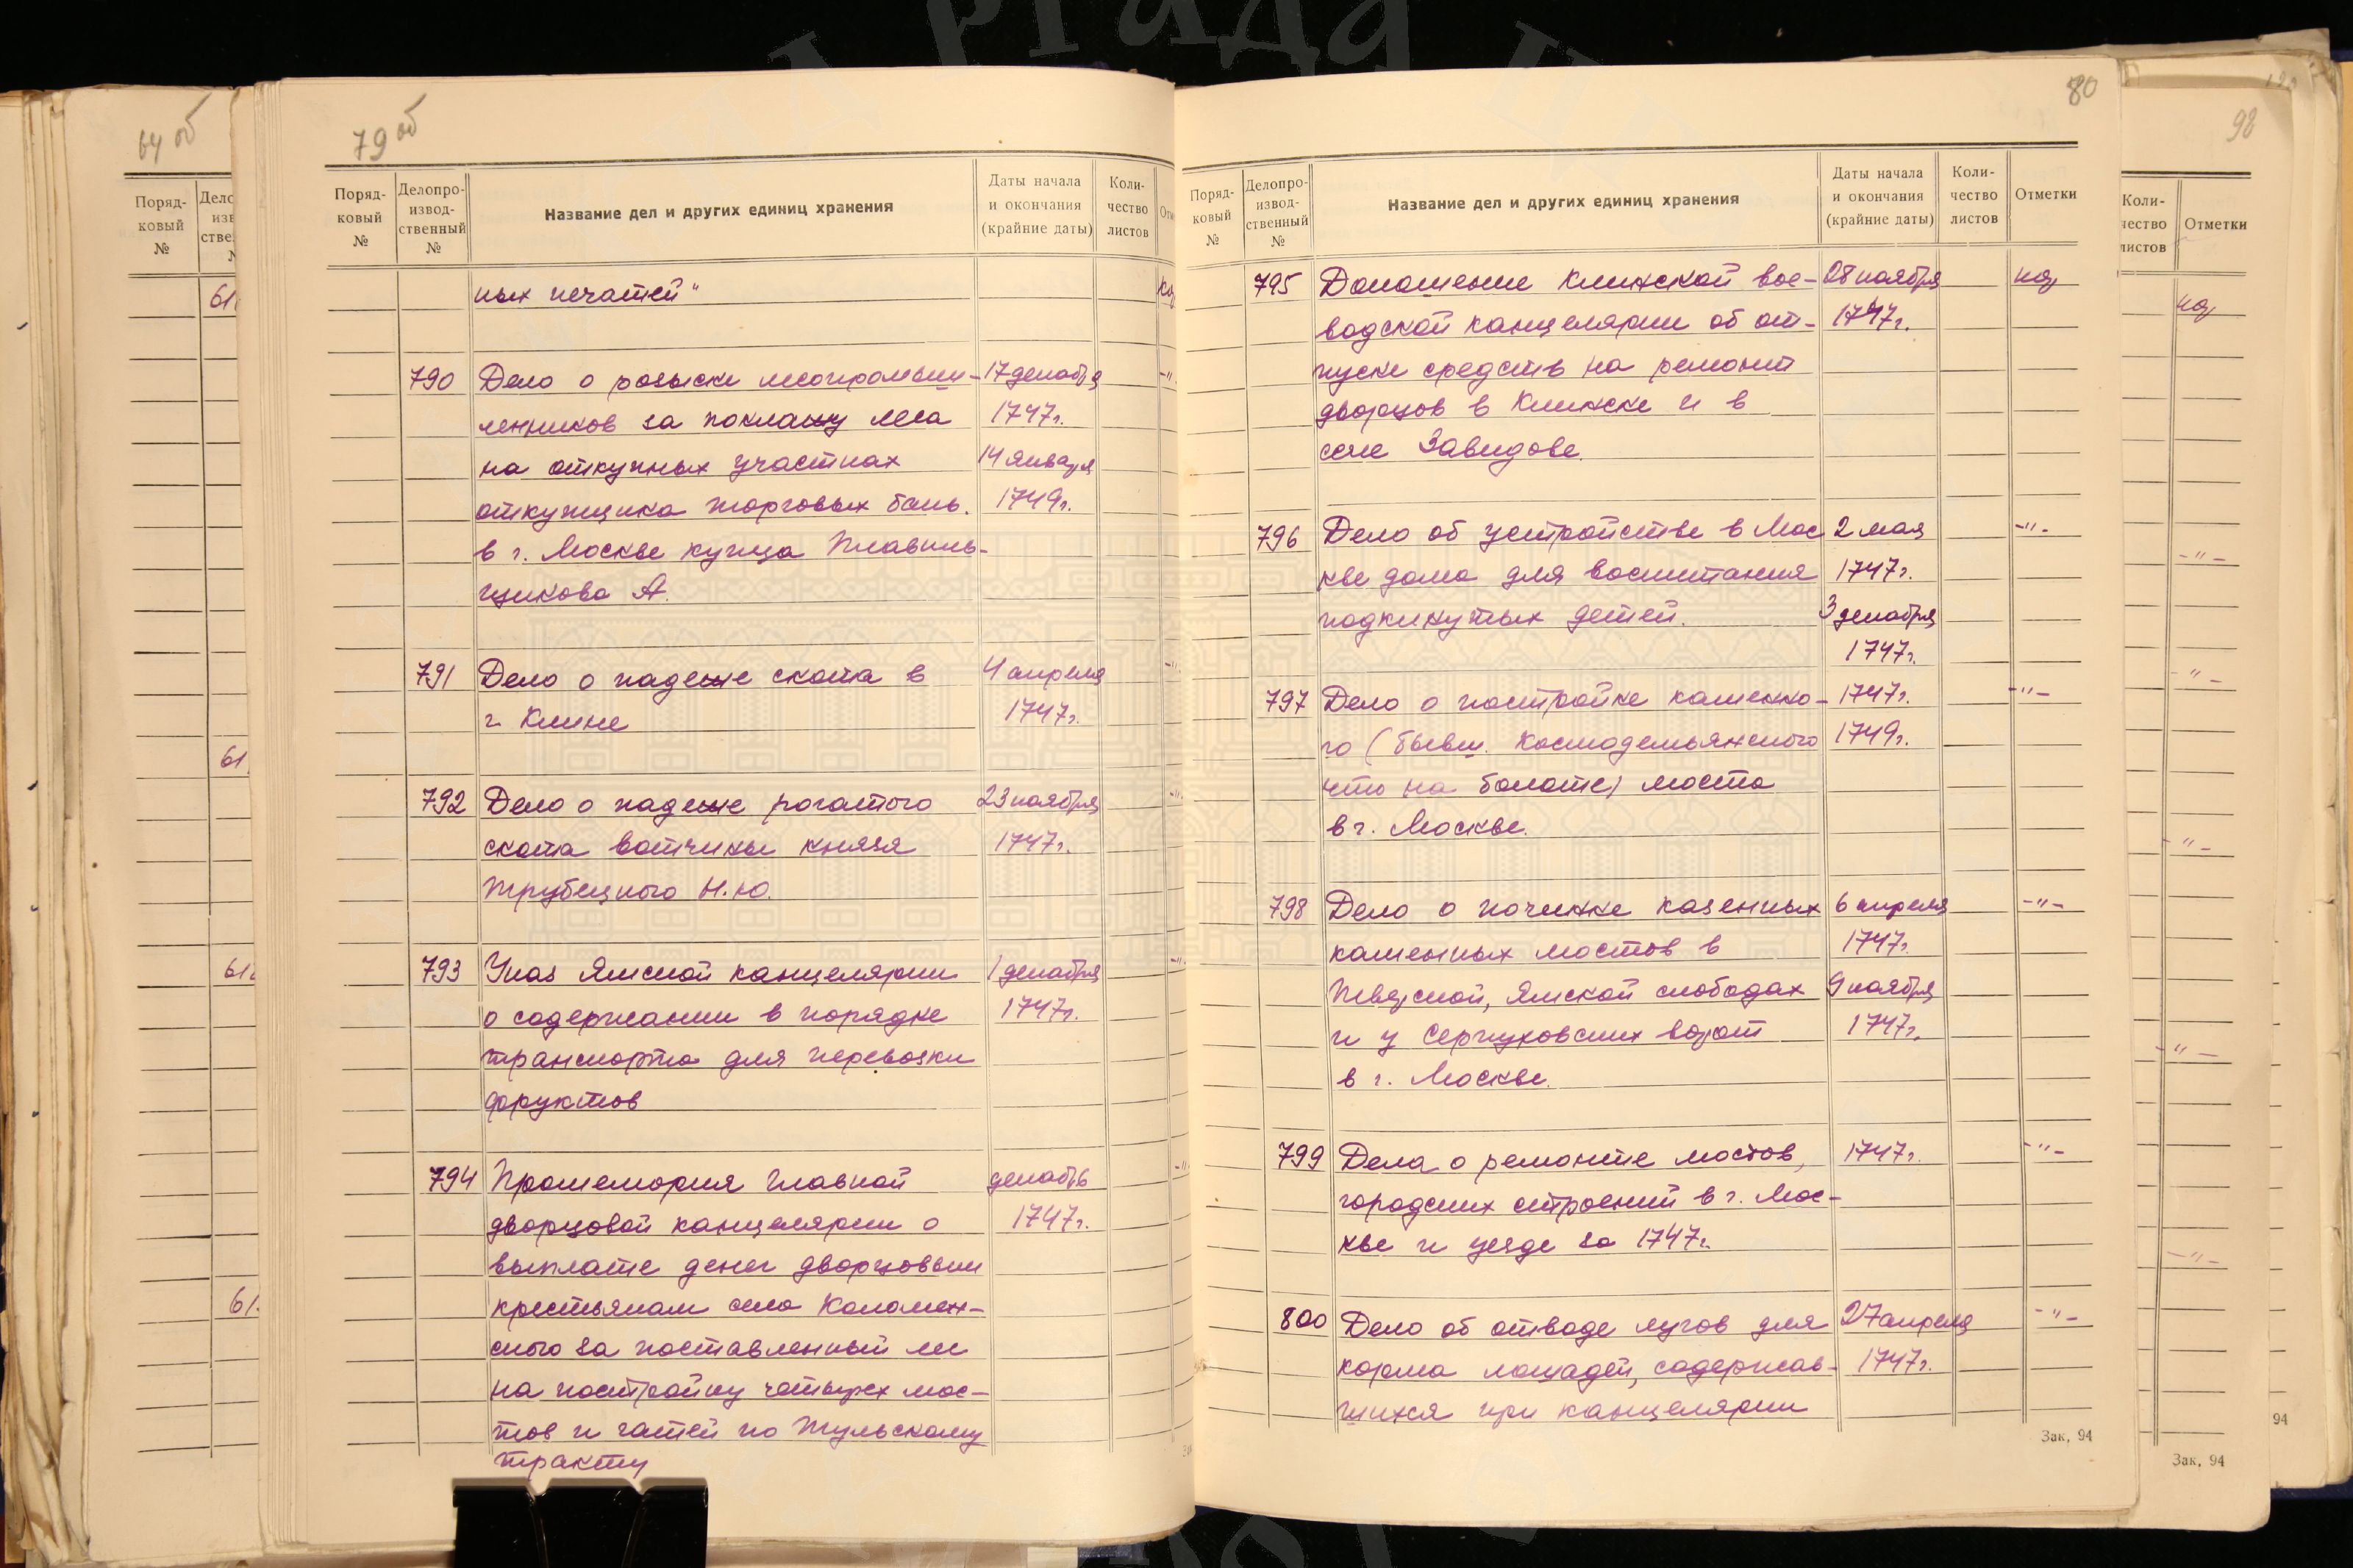 64 об
79 об
80
98
Поряд-
ковый
№
Поряд-
ковый
№
Делопро-
извод-
ственный
№
Название дел и других единиц хранения
Даты начала
и окончания
(крайние даты)
Коли-
чество
листов
ных печатей"
790 Дело о розыске лесопромыш- 17 декабря -"-
ленников за поклажу леса 1747г.
на откупных участках 14 января
откупщика торговых бань. 1749г.
в г. Москве купца Плавиль-
щикова А.
791 Дело о падеже скота в 4 апреля -"-
г. Клине 1747г.
792 Дело о падеже рогатого 23 ноября -"-
скота вотчины князя 1747г.
Трубецкого Н.Ю.
793 Указ Ямской канцелярии 1 декабря -"-
о содержании в порядке 1747г.
транспорта для перевозки
фруктов
794 Промемория Главной декабрь -"-
дворцовой канцелярии о 1747г.
выплате денег дворцовым
крестьянам села Коломен-
ского за поставленный лес
на постройку четырех мос-
тов и гатей по Тульскому
тракту
Поряд-
ковый
№
Делопро-
извод-
ственный
№
Название дел и других единиц хранения
Даты начала
и окончания
(крайние даты)
Коли-
чество
листов
Отметки
795 Доношение Клинской вое- 28 ноября
водской канцелярии об от- 1747г.
пуске средств на ремонт
дворцов в Клинске и в
селе Завидове.
796 Дело об устройстве в Мос 2 мая -"-
кве дома для воспитания 1747г.
подкинутых детей. 3 декабря
1747г.
797 Дело о постройке каменно- 1747г. -"-
го (бывш. Космодемьянского 1749г.
что на болоте) моста
в г. Москве.
798 Дело о починке казенных 6 апреля -"-
каменных мостов в 1747г.
Тверской, Ямской слободах 9 ноября
и у Серпуховских ворот 1747г.
в г. Москве.
799 Дела о ремонте мостов, 1747г. -"-
городских строений в г. Мос-
кве и уезде за 1747г.
800 Дело об отводе лугов для 27 апреля -"-
корма лошадей, содержав- 1747г.
шихся при канцелярии
Зак. 94
Коли-
чество
листов
Отметки
Зак. 94
94